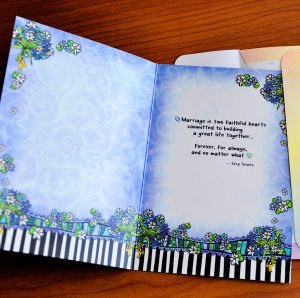 Marriage is two faithful hearts
committed to building
a great life together...
forever, for always,
and no matter what
— Suzy Toronto